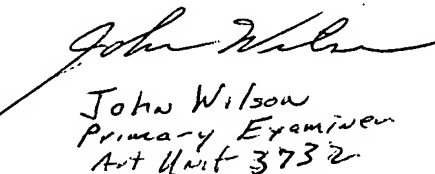 John Wilson
John Wilson
Primary Examiner
Art Unit 3732